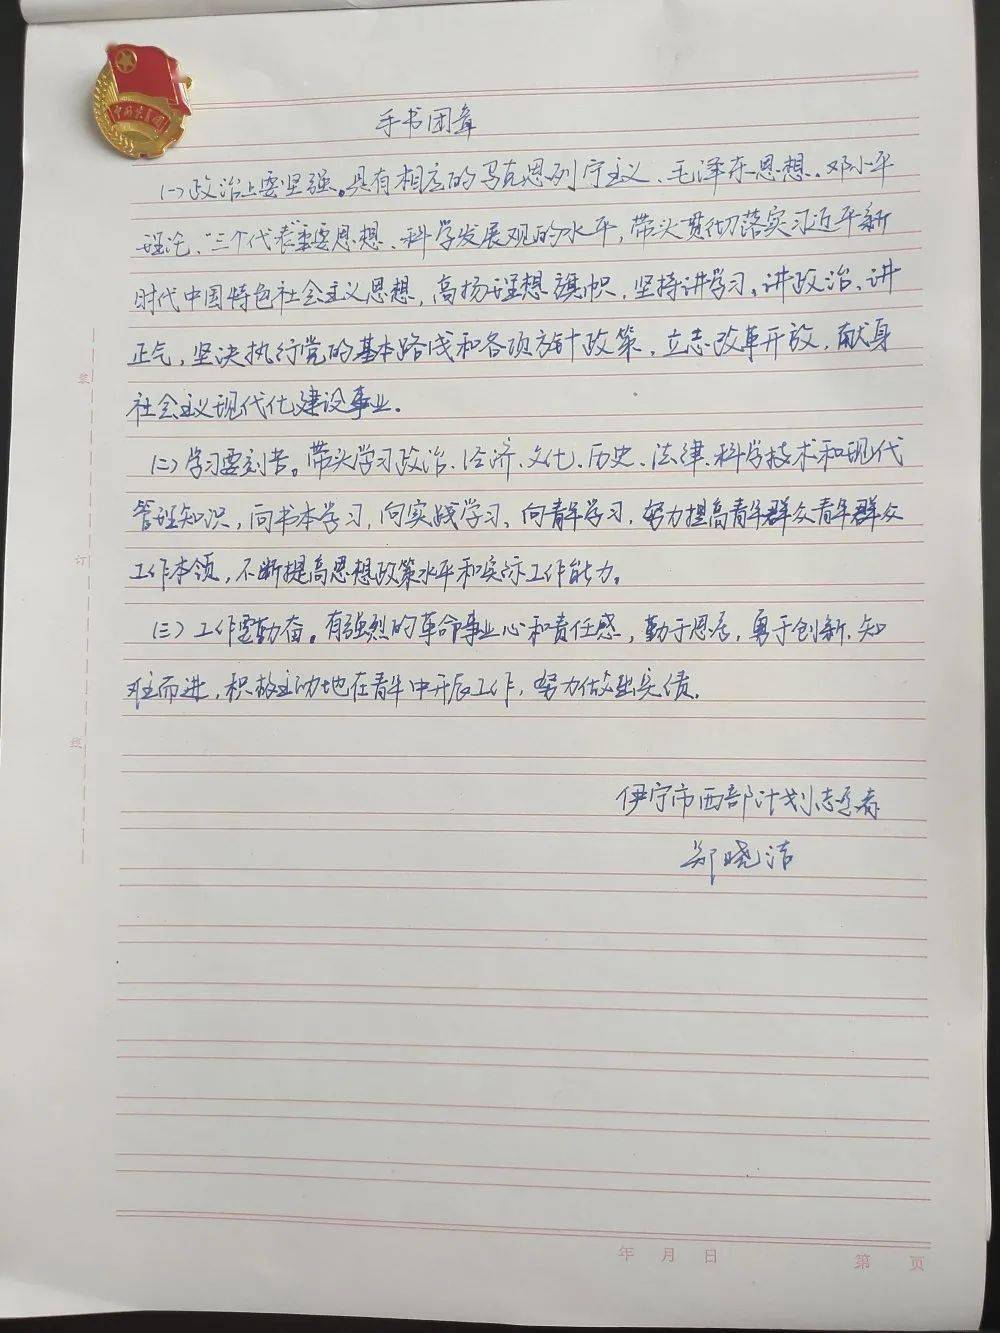 中国共青团
手书团章
(一)政治上要坚强。具有相应的马克思列宁主义、毛泽东思想、邓小平
理论、“三个代表”重要思想、科学发展观的水平,带头贯彻落实习近平新
时代中国特色社会主义思想,高扬理想旗帜,坚持讲学习、讲政治、讲
正气,坚决执行党的基本路线和各项方针政策,立志改革开放,献身
社会主义现代化建设事业。
(二)学习要刻苦。带头学习政治、经济、文化、历史、法律、科学技术和现代
管理知识,向书本学习,向实践学习、向青年学习,努力提高青年群众青年群众
工作本领,不断提高思想政策水平和实际工作能力。
(三)工作要勤奋。有强烈的革命事业心和责任感,勤于思考,勇于创新、知
难而进,积极主动地在青年中开展工作,努力做出实绩。
伊宁市西部计划志愿者
郑晓洁
装
订
线
年 月 日
第 页